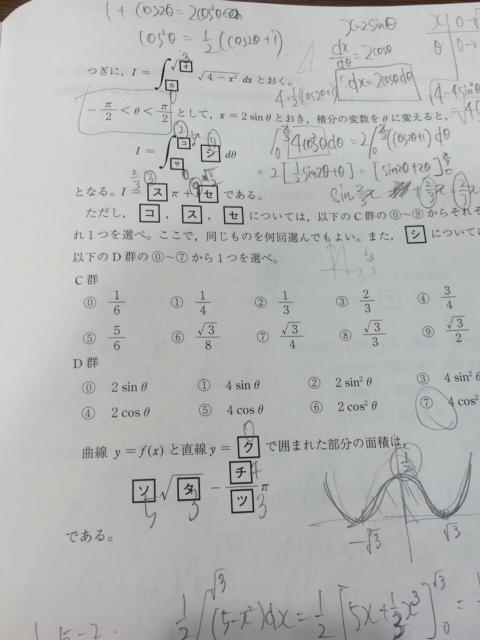 1 + cos2θ = 2cos²θ
cos²θ = 1/2 (cos2θ+1)
x=2sinθ
dx/dθ = 2cosθ
dx=2cosθdθ
つぎに，I = ∫ √オ カ √4 − x² dx とおく。
4・1/2(cos2θ+1)
−π/2 < θ < π/2 として，x = 2 sin θ とおき，積分の変数を θ に変えると，
I = ∫ コ サ シ dθ
4cos²θdθ = 2∫(cos2θ+1)dθ
= 2[1/2 sin2θ+θ] = [sin2θ+2θ]
となる。I = ス π + セ である。
ただし，コ，ス，セ については，以下の C 群の⓪〜⑨からそれぞ
れ 1 つを選べ。ここで，同じものを何回選んでもよい。また，シ について
以下の D 群の⓪〜⑦から 1 つを選べ。
C 群
⓪ 1/6 ① 1/4 ② 1/3 ③ 2/3 ④ 3/4
⑤ 5/6 ⑥ √3/8 ⑦ √3/4 ⑧ √3/3 ⑨ √3/2
D 群
⓪ 2 sin θ ① 4 sin θ ② 2 sin² θ ③ 4 sin²
④ 2 cos θ ⑤ 4 cos θ ⑥ 2 cos² θ ⑦ 4 cos²
曲線 y = f(x) と直線 y = ク で囲まれた部分の面積は，
ソ √タ − チ/ツ π
5 3 4 3
−√3 √3
である。
1/2∫(5−x²)dx = 1/2[5x+1/3x³]√3 0